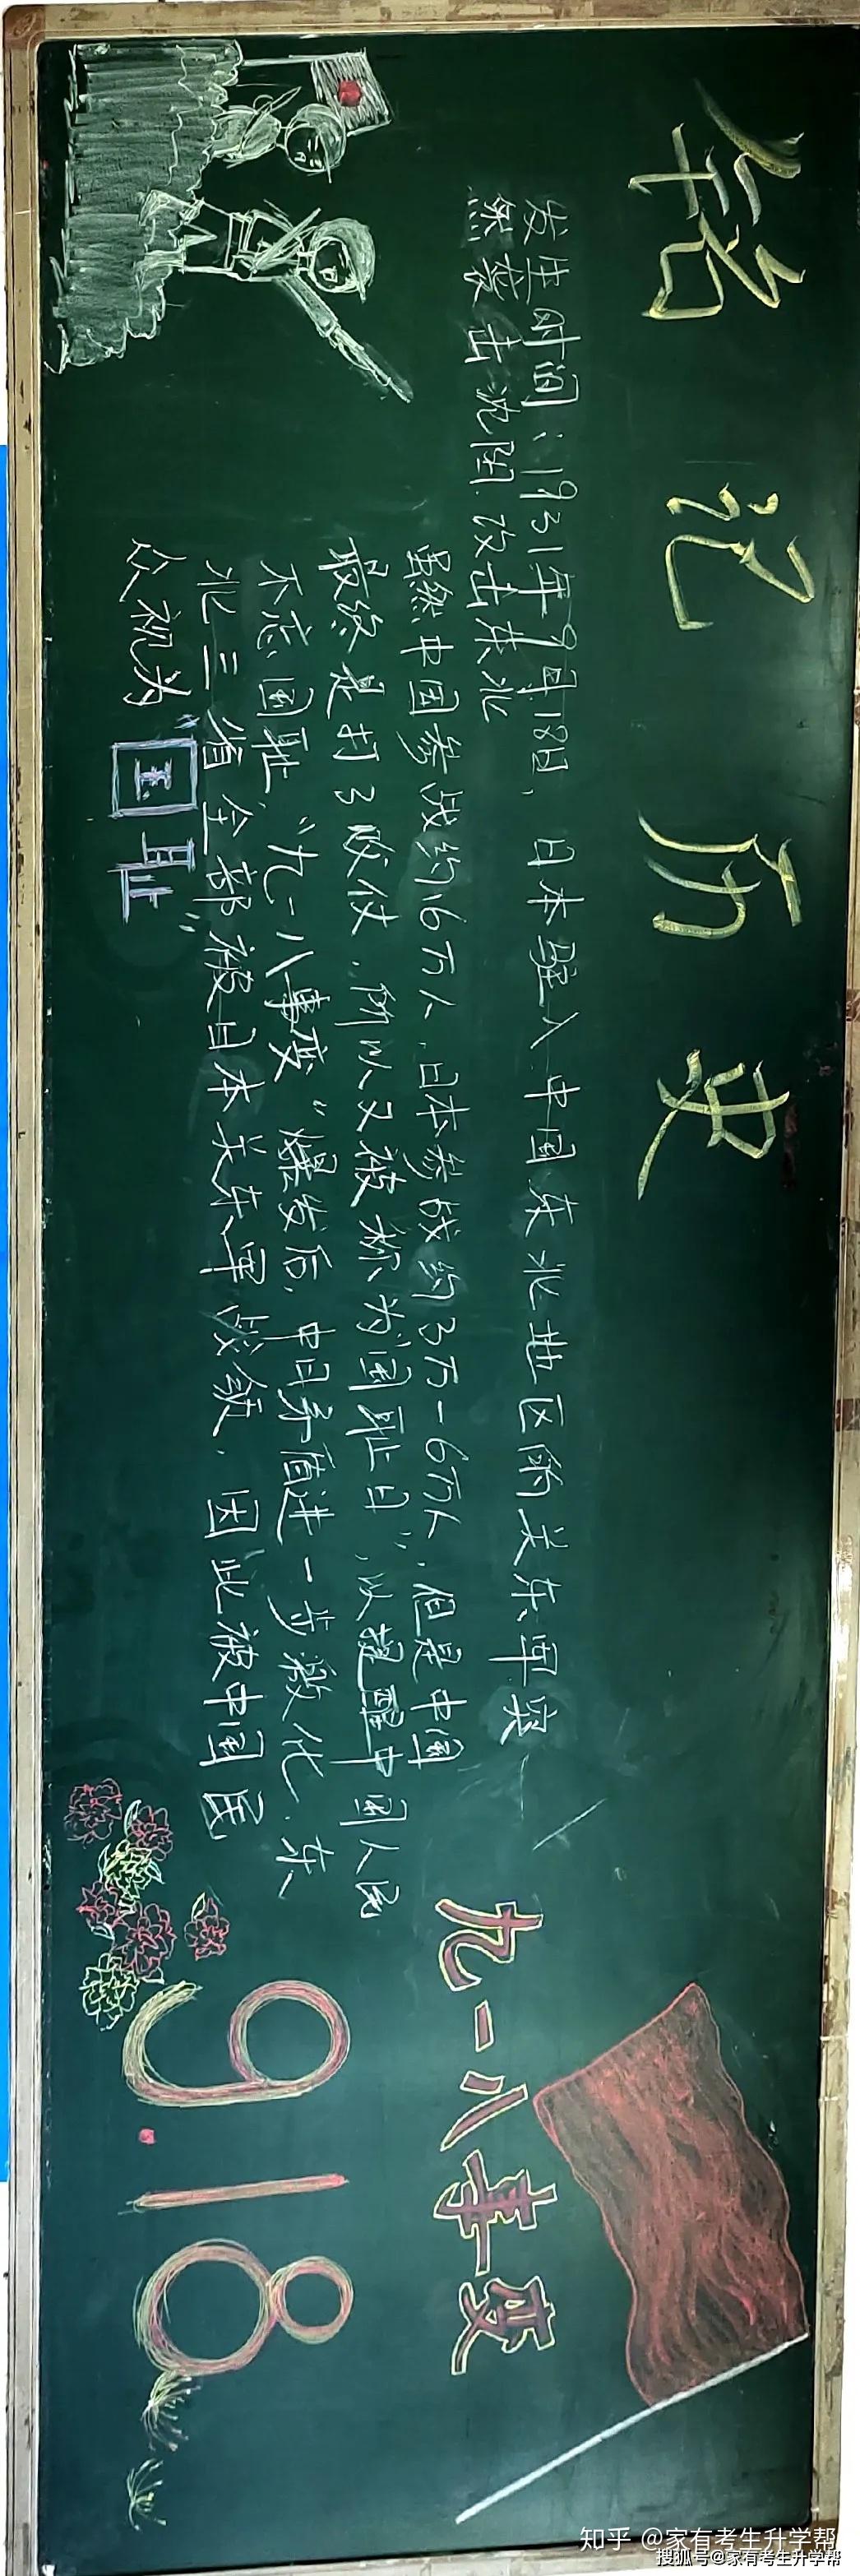 铭记历史
发生时间：1931年9月18日，日本驻入中国东北地区的关东军突
然袭击沈阳.攻击东北
虽然中国参战约16万人.日本参战约3万一6万人,但是中国
最终是打了败仗.所以又被称为"国耻日",以提醒中国人民
不忘国耻."九一八事变"爆发后.中日矛盾进一步激化.东
北三省全部被日本关东军战领.因此被中国民
众视为"国耻"
九一八事变
9.18
知乎 @家有考生升学帮
搜狐号@家有考生升学帮